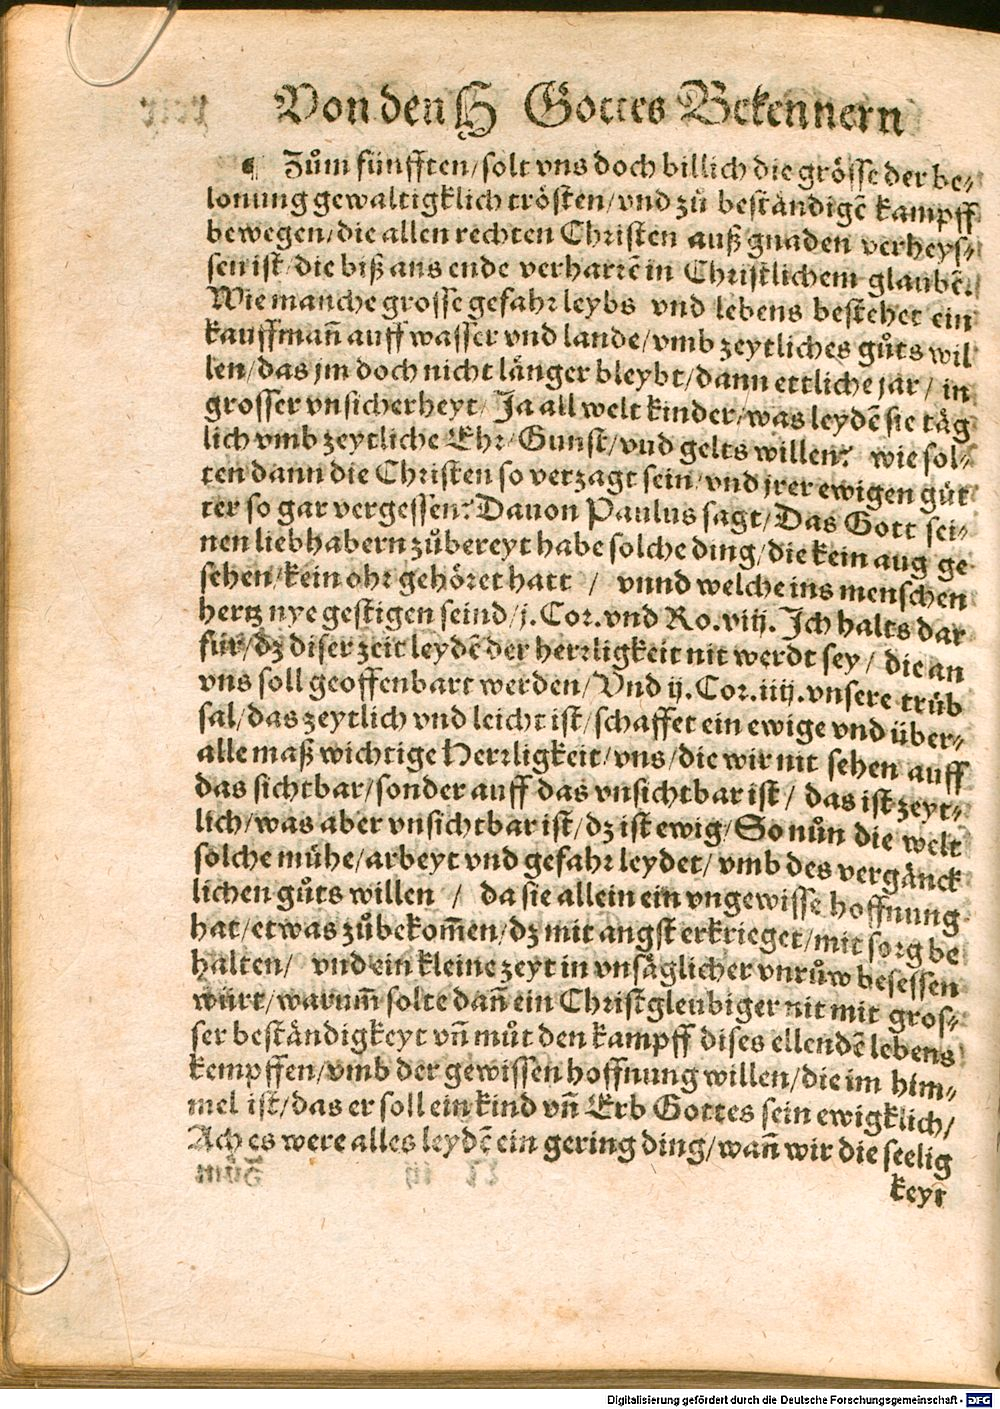 Von den H Gottes Bekennern
¶ Zům fünfften/solt vns doch billich die grösse der be⸗
lonung gewaltigklich trösten/vnd zů beständigē kampff
bewegen/die allen rechten Christen auß gnaden verheys⸗
sen ist/die biß ans ende verharrē in Christlichem glaubē.
Wie manche grosse gefahr leybs vnd lebens bestehet ein
kauffmañ auff wasser vnd lande/vmb zeytliches gůts wil
len/das jm doch nicht länger bleybt/dann ettliche jar/ in
grosser vnsicherheyt/ Ja all welt kinder/was leydē sie täg
lich vmb zeytliche Ehr/Gunst/vnd gelts willen? wie sol⸗
ten dann die Christen so verzagt sein/vnd jrer ewigen güt
ter so gar vergessen? Dauon Paulus sagt/Das Gott sei⸗
nen liebhabern zůbereyt habe solche ding/die kein aug ge
sehen/kein ohr gehöret hatt / vnnd welche ins menschen
hertz nye gestigen seind/j. Cor. vnd Ro. viij. Ich halts dar
für/dz diser zeit leydē der herrligkeit nit werdt sey/ die an
vns soll geoffenbart werden/Vnd ij. Cor. iiij. vnsere trüb
sal/das zeytlich vnd leicht ist/schaffet ein ewige vnd über⸗
alle maß wichtige Herrligkeit/vns/die wir nit sehen auff
das sichtbar/sonder auff das vnsichtbar ist/ das ist zeyt⸗
lich/was aber vnsichtbar ist/dz ist ewig/So nůn die welt
solche mühe/arbeyt vnd gefahr leydet/vmb des vergänck
lichen gůts willen / da sie allein ein vngewisse hoffnung
hat/etwas zůbekom̄en/dz mit angst erkrieget/mit sorg be
halten/ vnd ein kleine zeyt in vnsäglicher vnrůw besessen
würt/warum̄ solte dañ ein Christgleubiger nit mit gros⸗
ser beständigkeyt vñ můt den kampff dises ellendē lebens
kempffen/vmb der gewissen hoffnung willen/die im him⸗
mel ist/das er soll ein kind vñ Erb Gottes sein ewigklich/
Ach es were alles leydē ein gering ding/wañ wir die seelig
keyt
Digitalisierung gefördert durch die Deutsche Forschungsgemeinschaft - DFG